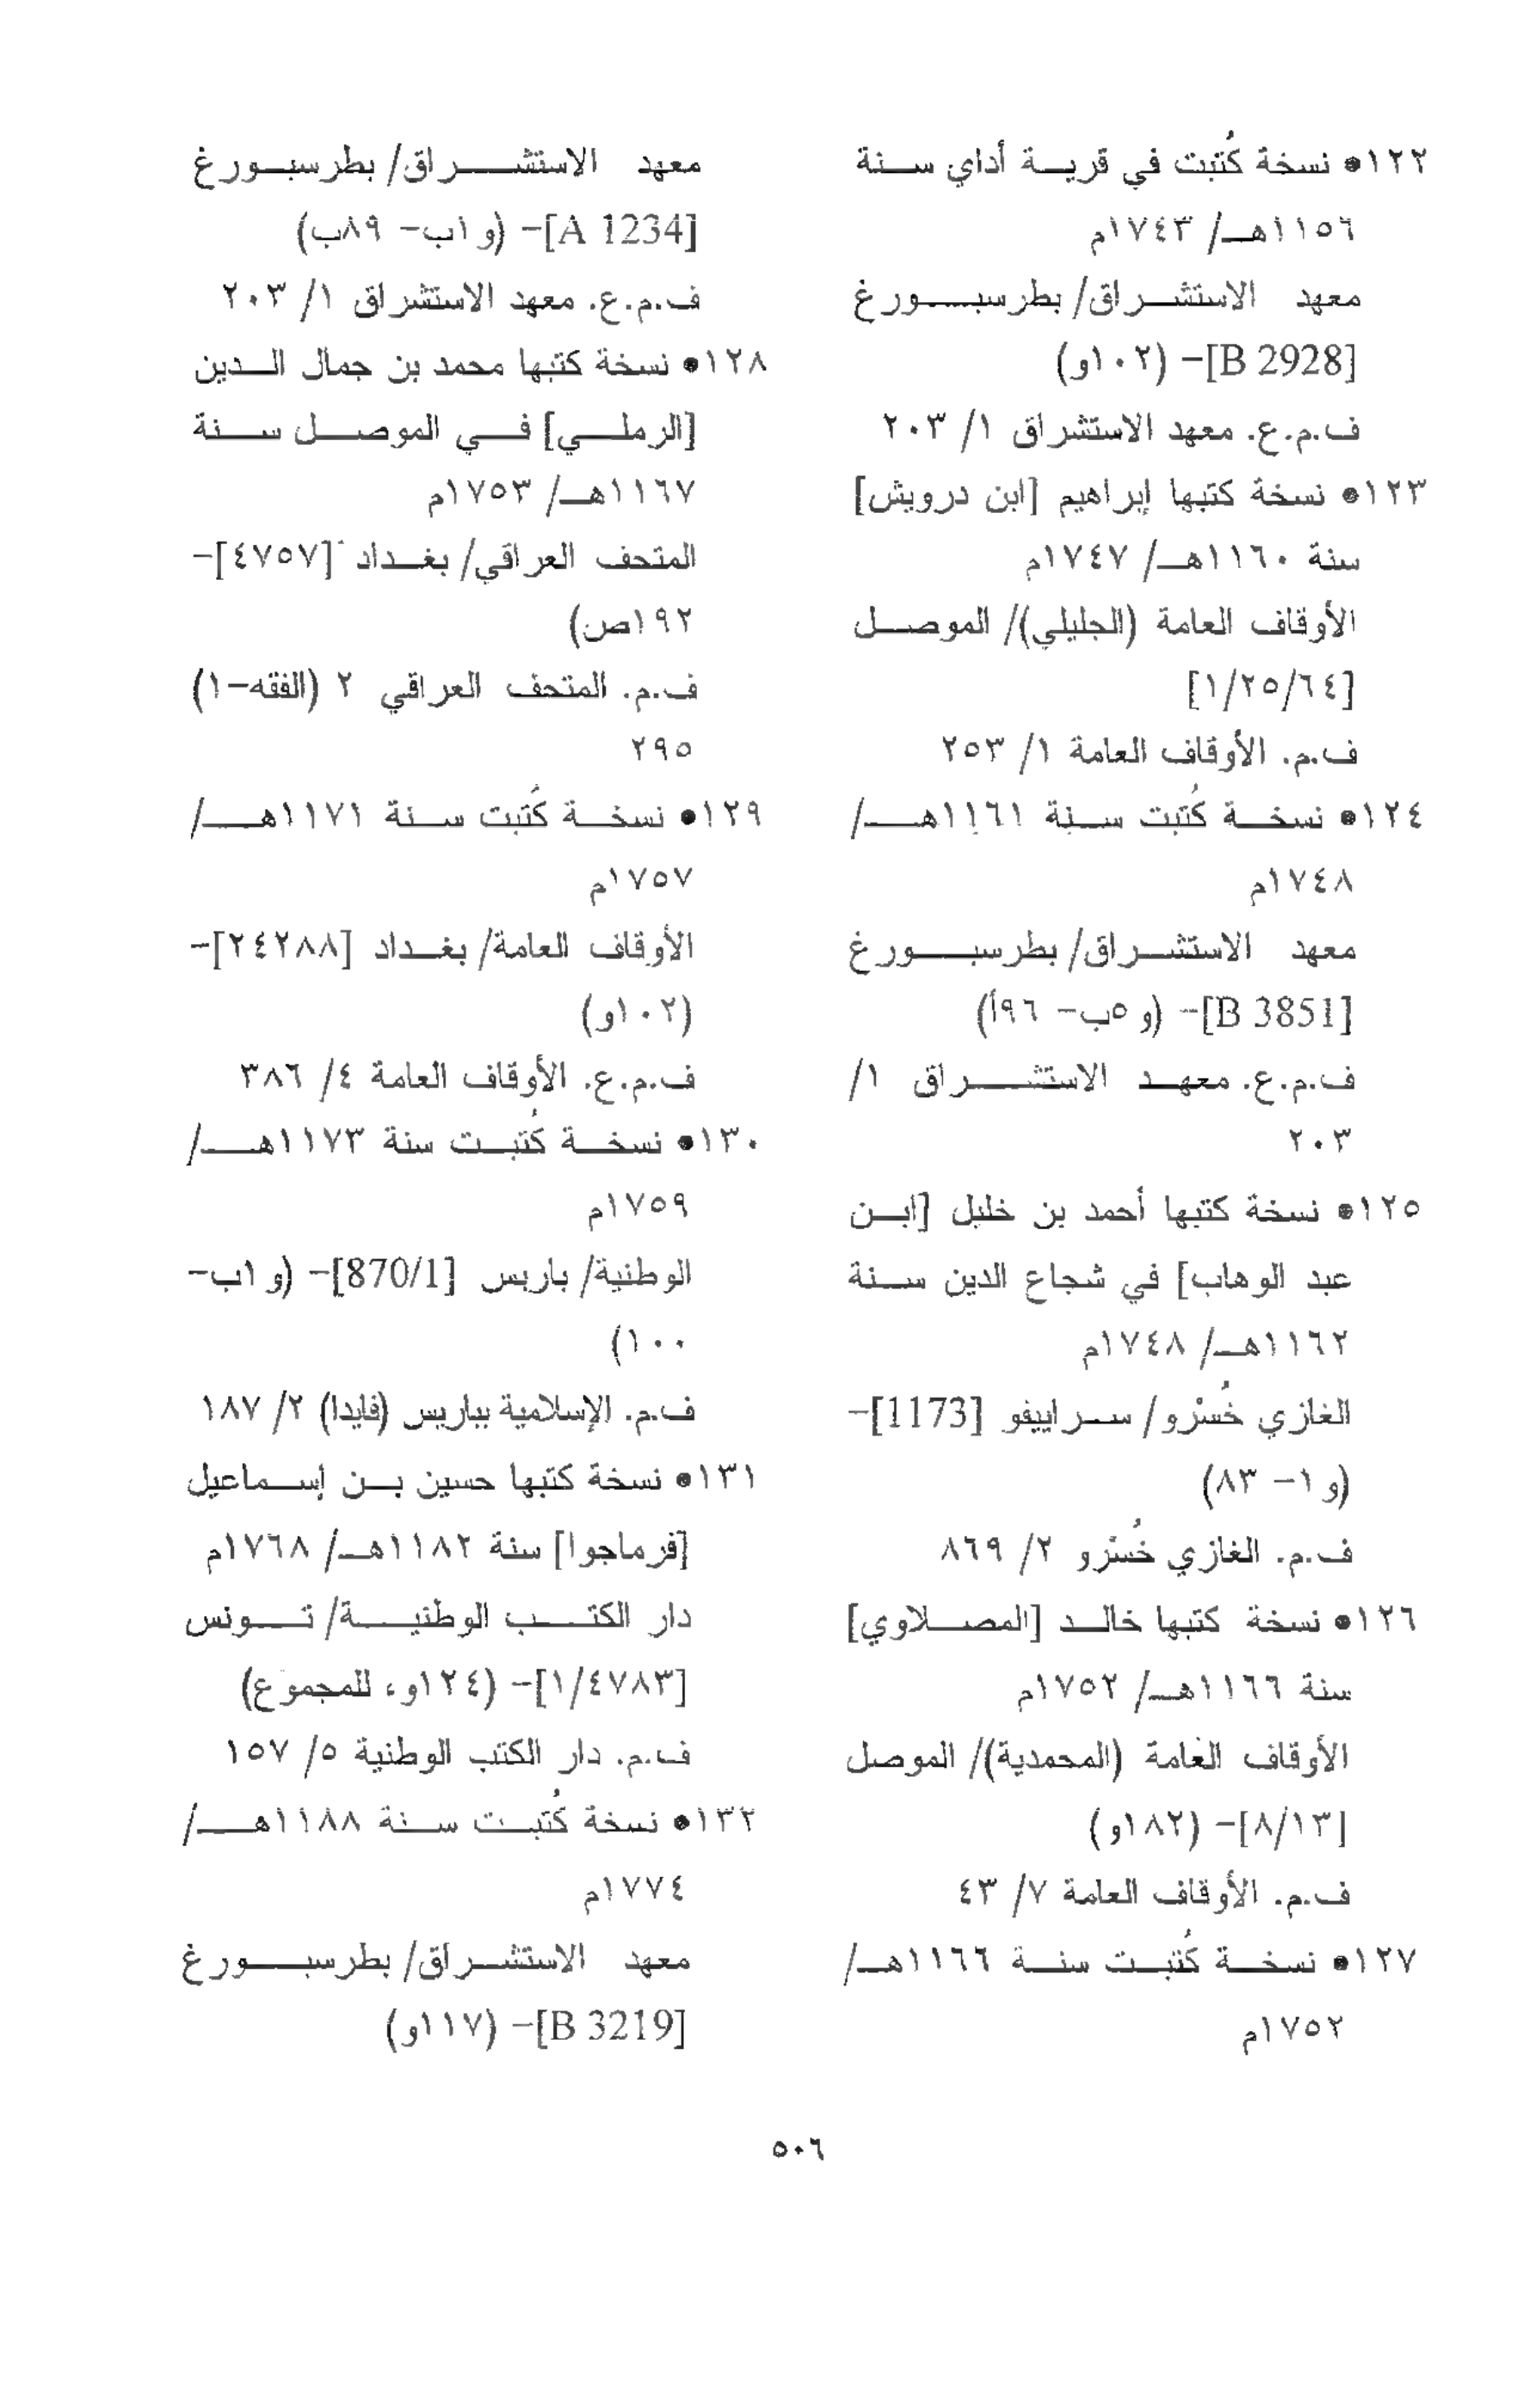 ١٢٢• نسخة كُتبت في قرية أداي سنة
١١٥٦هـ/ ١٧٤٣م
معهد الاستشراق/ بطرسبورغ
[B 2928]- (١٠٢و)
ف.م.ع. معهد الاستشراق ١/ ٢٠٣
١٢٣• نسخة كتبها إبراهيم [ابن درويش]
سنة ١١٦٠هـ/ ١٧٤٧م
الأوقاف العامة (الجليلي)/ الموصل
[١/٢٥/٦٤]
ف.م. الأوقاف العامة ١/ ٢٥٣
١٢٤• نسخة كُتبت سنة ١١٦١هـ/
١٧٤٨م
معهد الاستشراق/ بطرسبورغ
[B 3851]- (و ٥ب- ٩٦أ)
ف.م.ع. معهد الاستشراق ١/
٢٠٣
١٢٥• نسخة كتبها أحمد بن خليل [ابن
عبد الوهاب] في شجاع الدين سنة
١١٦٢هـ/ ١٧٤٨م
الغازي خُسْرو/ سراييفو [1173]-
(و ١- ٨٣)
ف.م. الغازي خُسْرو ٢/ ٨٦٩
١٢٦• نسخة كتبها خالد [المصلاوي]
سنة ١١٦٦هـ/ ١٧٥٢م
الأوقاف العامة (المحمدية)/ الموصل
[٨/١٣]- (١٨٢و)
ف.م. الأوقاف العامة ٧/ ٤٣
١٢٧• نسخة كُتبت سنة ١١٦٦هـ/
١٧٥٢م
معهد الاستشراق/ بطرسبورغ
[A 1234]- (و ١ب- ٨٩ب)
ف.م.ع. معهد الاستشراق ١/ ٢٠٣
١٢٨• نسخة كتبها محمد بن جمال الدين
[الرملي] في الموصل سنة
١١٦٧هـ/ ١٧٥٣م
المتحف العراقي/ بغداد [٤٧٥٧]-
١٩٢ص)
ف.م. المتحف العراقي ٢ (الفقه-١)
٢٩٥
١٢٩• نسخة كُتبت سنة ١١٧١هـ/
١٧٥٧م
الأوقاف العامة/ بغداد [٢٤٢٨٨]-
(١٠٢و)
ف.م.ع. الأوقاف العامة ٤/ ٣٨٦
١٣٠• نسخة كُتبت سنة ١١٧٣هـ/
١٧٥٩م
الوطنية/ باريس [870/1]- (و ١ب-
١٠٠)
ف.م. الإسلامية بباريس (فايدا) ٢/ ١٨٧
١٣١• نسخة كتبها حسين بن إسماعيل
[قرماجوا] سنة ١١٨٢هـ/ ١٧٦٨م
دار الكتب الوطنية/ تونس
[١/٤٧٨٣]- (١٢٤و، للمجموع)
ف.م. دار الكتب الوطنية ٥/ ١٥٧
١٣٢• نسخة كُتبت سنة ١١٨٨هـ/
١٧٧٤م
معهد الاستشراق/ بطرسبورغ
[B 3219]- (١١٧و)
٥٠٦